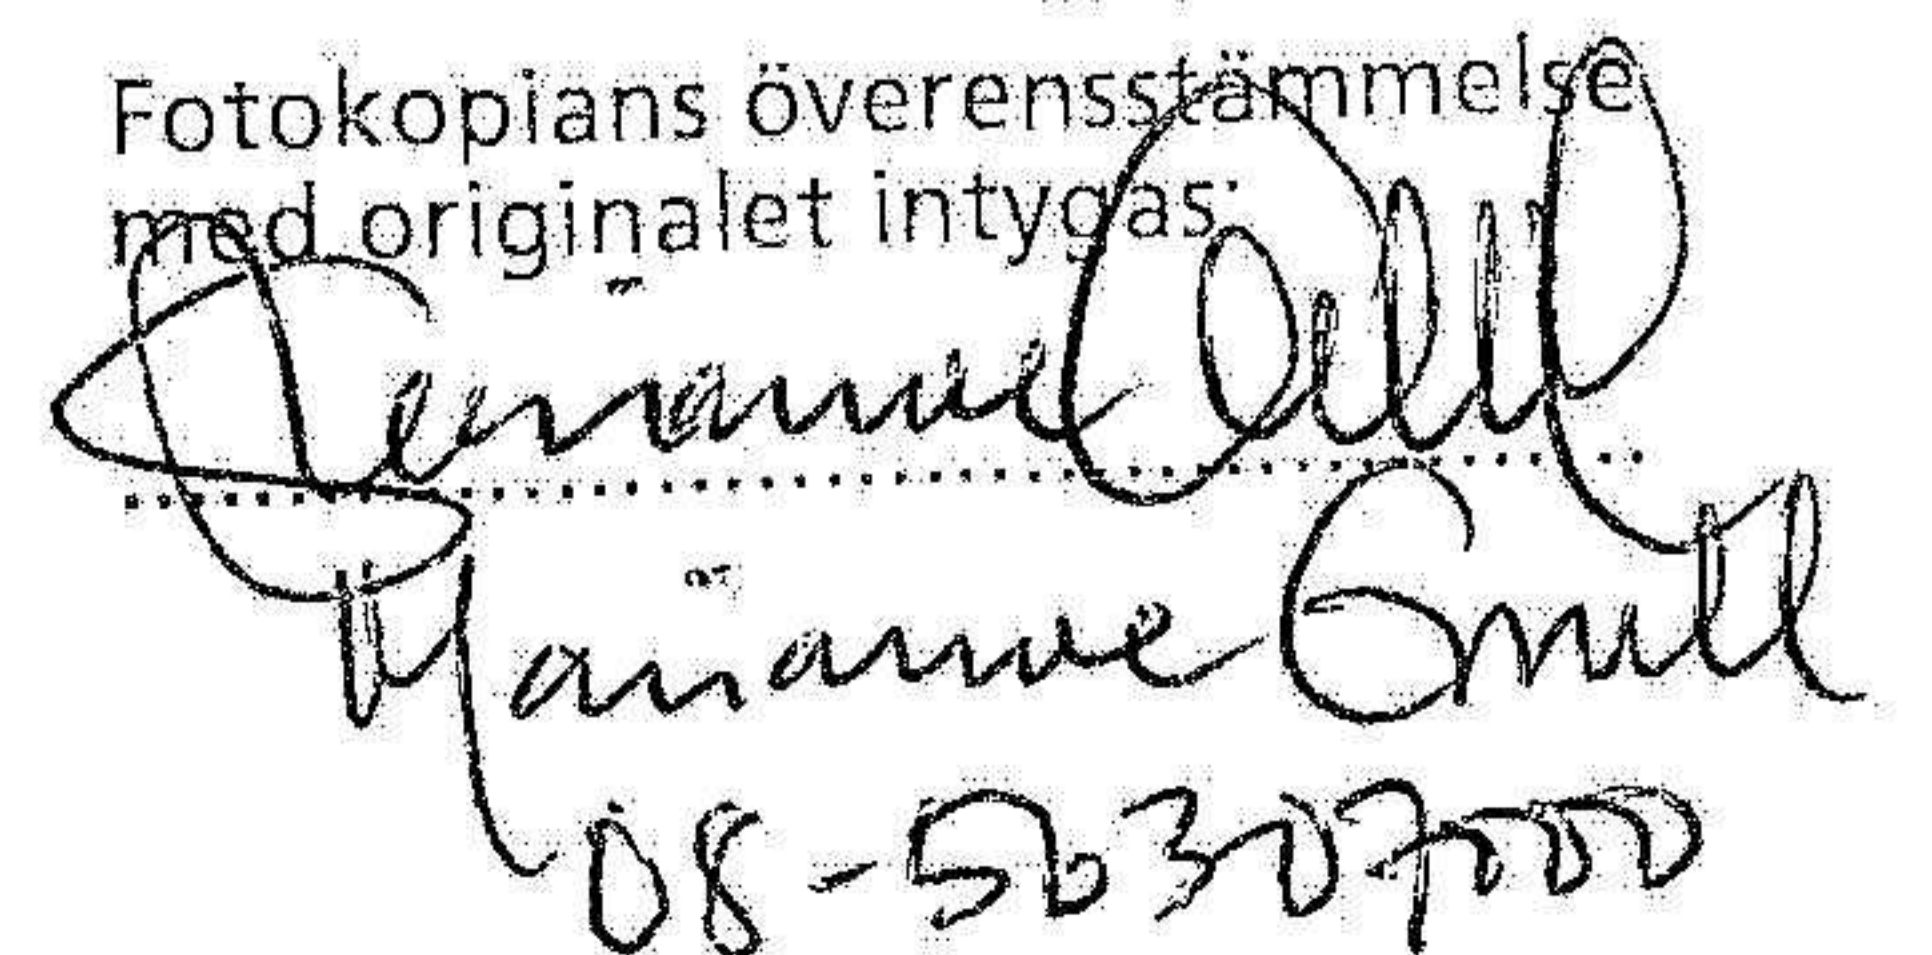 Fotokopians överensstämmelse
med originalet intygas:
Marianne
08-56307000